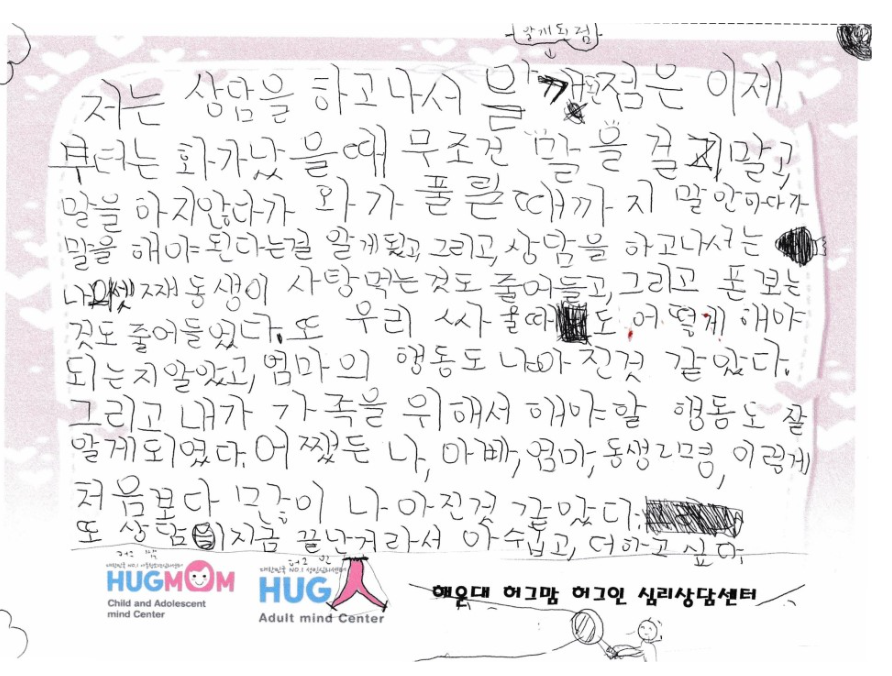 알게 되 점
저는 상담을 하고나서 알게된점은 이제
부터는 화가났을때 무조건 말을 걸지말고,
말을 하지않다가 화가 풀릴때까지 말 안하다가
말을 해야 된다는걸 알게됬고, 그리고, 상담을 하고나서는
나의 셋째동생이 사탕먹는것도 줄어들고, 그리고 폰 보는
것도 줄어들었다. 또 우리 싸울때도 어떻게 해야
되는지알았고, 엄마의 행동도 나아진것 같았다.
그리고 내가 가족을 위해서 해야할 행동도 잘
알게되었다. 어쨌든 나, 아빠, 엄마, 동생2명, 이렇게
처음보다 많이 나아진것 같았다.
또 상담이 지금 끝난거라서 아쉽고, 더하고 싶다.
허그맘
HUGMOM
Child and Adolescent
mind Center
허그인
대한민국 NO.1 성인심리센터
HUG
Adult mind Center
해운대 허그맘 허그인 심리상담센터